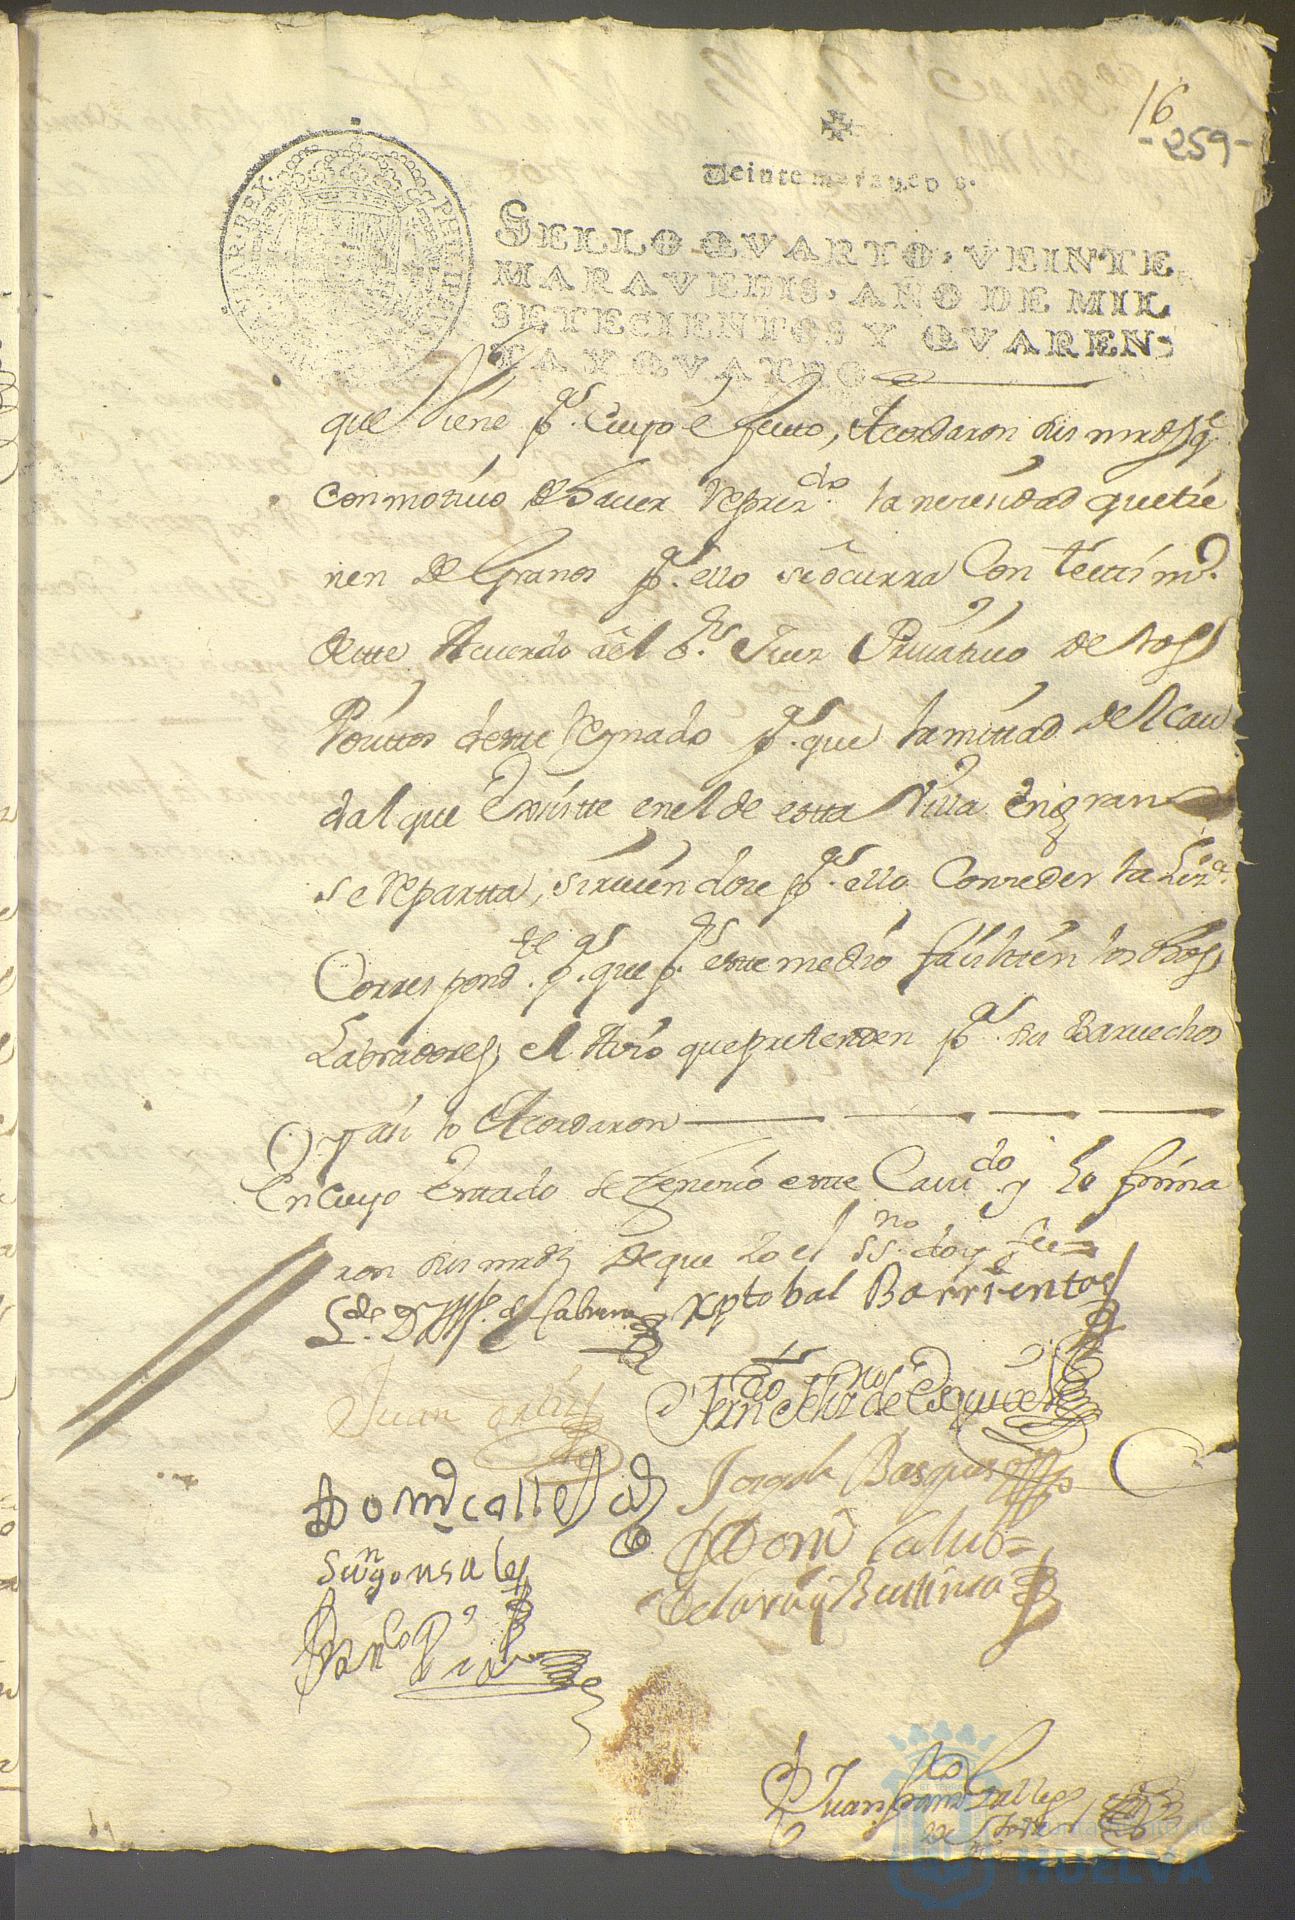 16
-259-
Veinte maravedis.
SELLO QVARTO, VEINTE
MARAVEDIS, AÑO DE MIL
SETECIENTOS Y QVAREN-
TA Y QVATRO
PHILIPPUS
que viene pa. cuyo efecto, Acordaron sus mrds qe
con motivo de haver represdo. la nesesidad que tie
nen de Granos pa. ello se ôcurra Con testimo.
deste Acuerdo âel Sr. Juez Privativo de los
Pósittos deste Reynado pa. que la mitad del cau
dal que Existte en el de esta Villa en gran
se reparta, sirviendose pa. ello Conceder la Liza.
Correspondte. pa. que pr. este medio faciliten los dhos
Labradores el Avio que pretenden pa. sus Barvechos
y asi lo Acordaron
En cuyo Estado se fenecio este Cavdo y lo firma
ron sus mrds de que Yo el ssno. doy fee=
Lde. Dn de Cabrera
Xptobal Barrientos
Juan Ortiz
Ferndo de Esquivel
Domo calle
Joseph Basques
Domo Calvo
Sevn gonsales
de la rosa y Bustineta
Franco
Juan Franco Gallego
Ayuntamiento de
HUELVA